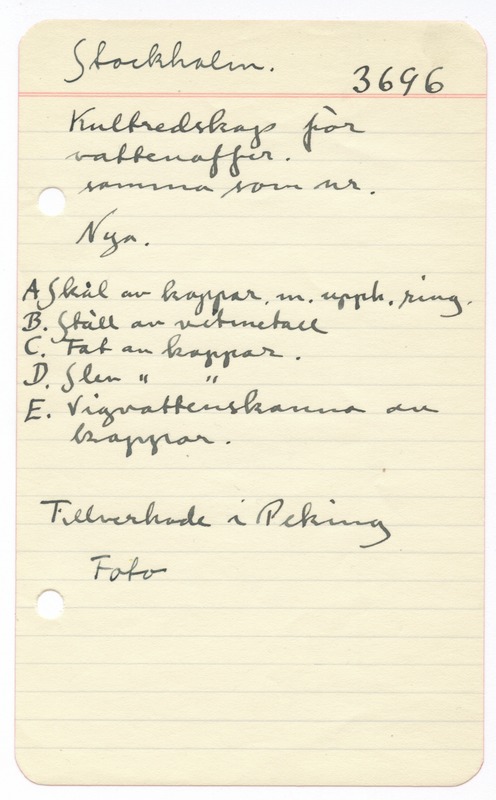 Stockholm.
3696
Kultredskap för
vattenoffer.
samma som nr.
Nya.
A Skål av koppar. m. upph. ring.
B. Ställ av vitmetall
C. Fat av koppar.
D. Slev " "
E. Vigvattenskanna av
koppar.
Tillverkade i Peking
Foto